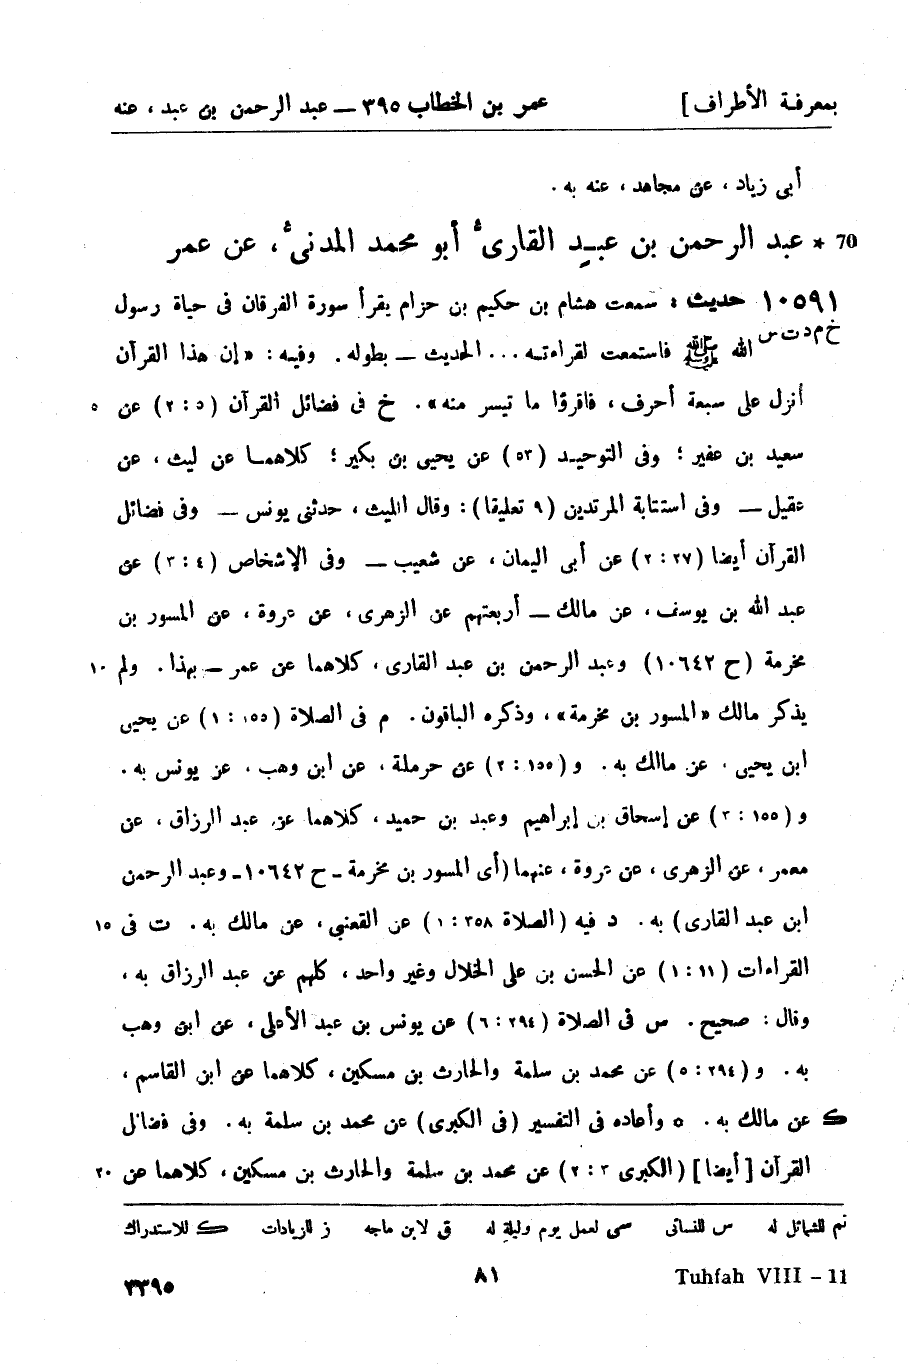 بمعرفة الأطراف] عمر بن الخطاب ٣٩٥ ــ عبد الرحمن بن عبد ، عنه
أبى زياد ، عن مجاهد ، عنه به .
70 * عبد الرحمن بن عبـد القارىّ أبو محمد المدنىّ ، عن عمر
١٠٥٩١ حديث : سمعت هشام بن حكيم بن حزام يقرأ سورة الفرقان فى حياة رسول
خ م د ت س الله ﷺ فاستمعت لقراءتـه ... الحديث ــ بطوله . وفيـه : «إن هذا القرآن
أنزل على سبعة أحرف ، فاقرؤا ما تيسر منه» . خ فى فضائل القرآن (٥ : ٢) عن ٥
سعيد بن عفير ؛ وفى التوحيـد (٥٣) عن يحيى بن بكير ؛ كلاهمـا عن ليث ، عن
عقيل ــ وفى استتابة المرتدين (٩ تعليقا) : وقال الليث ، حدثنى يونس ــ وفى فضائل
القرآن أيضا (٢٧ : ٢) عن أبى اليمان ، عن شعيب ــ وفى الإشخاص (٤ : ٣) عن
عبد الله بن يوسف ، عن مالك ــ أربعتهم عن الزهرى ، عن عروة ، عن المسور بن
مخرمة (ح ١٠٦٤٢) وعبد الرحمن بن عبد القارى ، كلاهما عن عمر ــ بهذا . ولم ١٠
يذكر مالك «المسور بن مخرمة» ، وذكره الباقون . م فى الصلاة (١٥٥ : ١) عن يحيى
ابن يحيى ، عن مالك به . و (١٥٥ : ٢) عن حرملة ، عن ابن وهب ، عن يونس به .
و (١٥٥ : ٣) عن إسحاق بن إبراهيم وعبد بن حميد ، كلاهما عن عبد الرزاق ، عن
معمر ، عن الزهرى ، عن عروة ، عنهما (أى المسور بن مخرمة ـ ح ١٠٦٤٢ ـ وعبد الرحمن
ابن عبد القارى) به . د فيه (الصلاة ٣٥٨ : ١) عن القعنبى ، عن مالك به . ت فى ١٥
القراءات (١١ : ١) عن الحسن بن على الخلال وغير واحد ، كلهم عن عبد الرزاق به ،
وقال : صحيح . س فى الصلاة (٢٩٤ : ٦) عن يونس بن عبد الأعلى ، عن ابن وهب
به . و (٢٩٤ : ٥) عن محمد بن سلمة والحارث بن مسكين ، كلاهما عن ابن القاسم ،
ك عن مالك به . ٥ وأعاده فى التفسير (فى الكبرى) عن محمد بن سلمة به . وفى فضائل
القرآن [أيضا] (الكبرى ٣ : ٢) عن محمد بن سلمة والحارث بن مسكين ، كلاهما عن ٢٠
تم للشمائل له س للنسائى سى لعمل يوم وليلة له ق لابن ماجه ز للزيادات ك للاستدراك
Tuhfah VIII – 11 ٨١ ٣٣٩٥